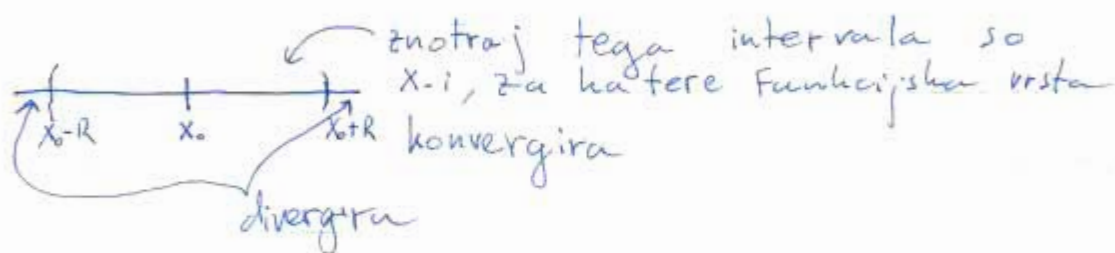 znotraj tega intervala so
x-i, za katere funkcijska vrsta
konvergira
x₀-R x₀ x₀+R
divergira